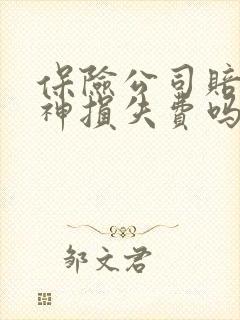 保险公司赔
神损失费吗
邹文君